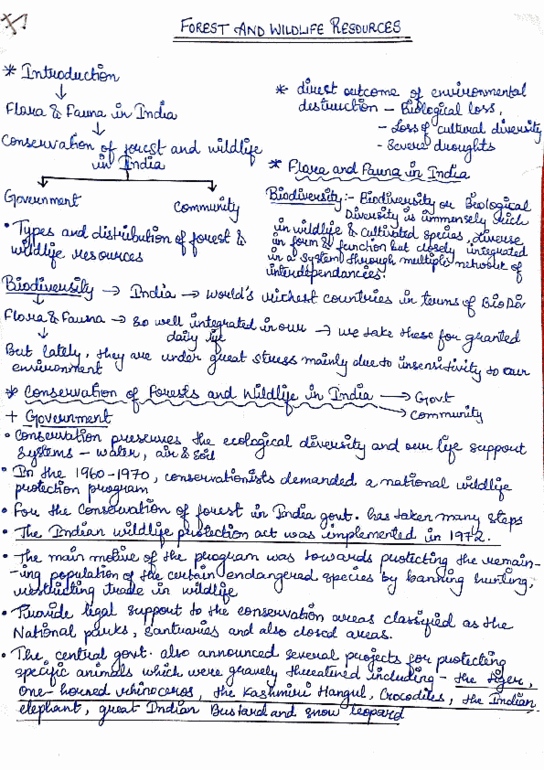 FOREST AND WILDLIFE RESOURCES
* Introduction
↓
Flora & Fauna in India
↓
Conservation of forest and wildlife
in India
Government
Community
• Types and distribution of forest &
wildlife resources
* direct outcome of environmental
destruction - Biological loss,
- Loss of cultural diversity
- Severe droughts
* Flora and Fauna in India
Biodiversity :- Biodiversity or Biological
Diversity is immensely rich
in wildlife & cultivated species, diverse
in form & function but closely integrated
in a system through multiple network of
interdependancies.
Biodiversity → India → world's richest countries in terms of BioDiv
↓
Flora & Fauna → so well integrated in our → we take these for granted
daily life
↓
But lately, they are under great stress mainly due to insensitivity to our
environment
* Conservation of Forests and Wildlife in India → Govt
→ community
+ Government
• Conservation preserves the ecological diversity and our life support
systems - water, air & soil
• In the 1960-1970, conservationists demanded a national wildlife
protection program
• For the conservation of forest in India govt. has taken many steps
• The Indian wildlife protection act was implemented in 1972.
• The main motive of the program was towards protecting the remain-
-ing population of the certain endangered species by banning hunting,
restricting trade in wildlife
• Provide legal support to the conservation areas classified as the
National parks, santuaries and also closed areas.
• The central govt. also announced several projects for protecting
specific animals which were gravely threatured including - the tiger,
one-horned rhinoceros, the Kashmiri Hangul, Crocodiles, the Indian
elephant, great Indian Bustard and snow leopard